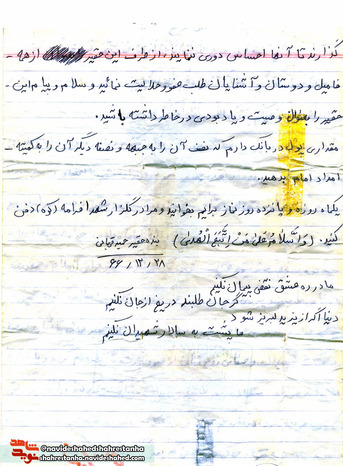 گذارند تا آنها احساس دوری ننمایند، از طرف این حقیر از همه -
فامیل و دوستان و آشنایان طلب عفو و حلالیت نمائید و سلام و پیام این -
حقیر را بعنوان وصیت و یادبودی در خاطر داشته باشید.
مقداری پول در بانک دارم که نصف آن را به جبهه و نصفه دیگر آن را به کمیته -
امداد امام بدهید.
یکماه روزه و پانزده روز نماز برایم بخوانید و مرا در گلزار شهدا دفن
کنید. (والسلام علی من اتبع الهدی) بنده حقیر
۶۶/۱۲/۲۸
ما در ره عشق نقض پیمان نکنیم
گر جان طلبند دریغ از جان نکنیم
دنیا اگر از یزید لبریز شود
ما پشت به سالار شهیدان نکنیم
نوید شاهد
@navideshahedshahrestanha
shahrestanha.navideshahed.com